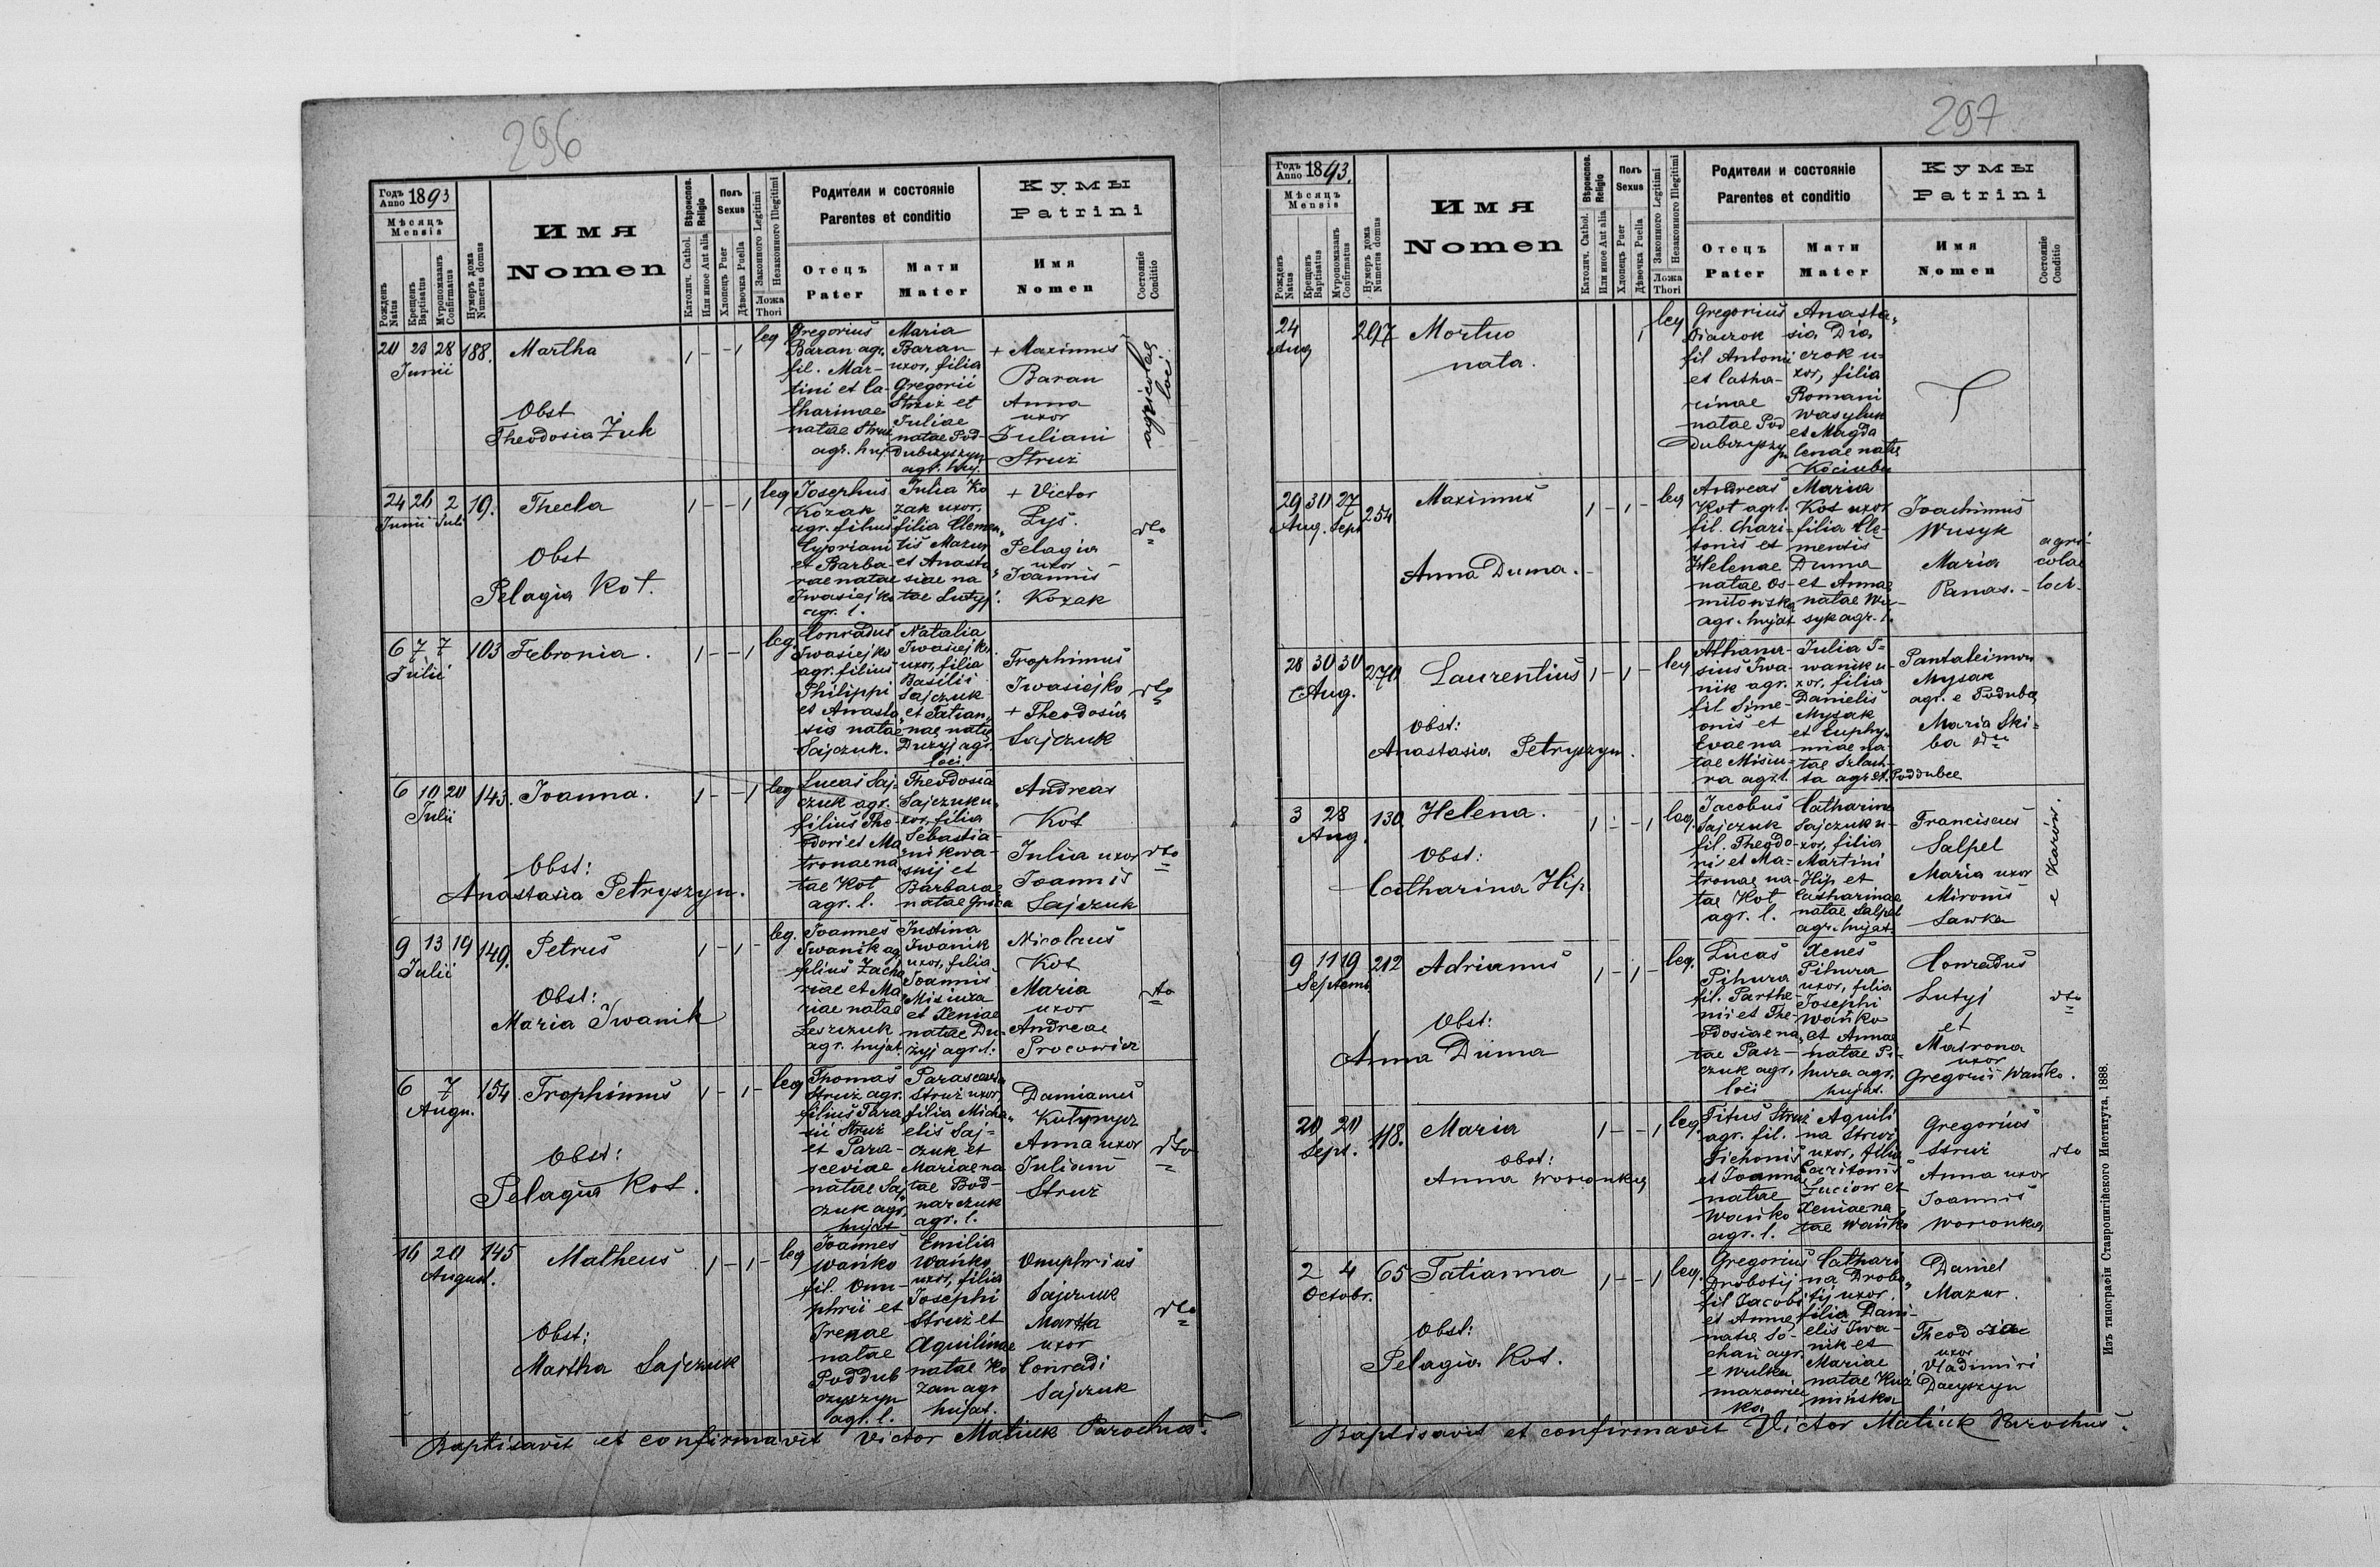 296
Годъ Anno 1893
Мѣсяцъ
Mensis
Рожденъ Natus
Крещенъ Baptisatus
Мѵропомазанъ Confirmatus
Нумеръ дома Numerus domus
Имя
Nomen
Вѣроиспов. Religio
Католич. Cathol.
Или иное Aut alia
Полъ
Sexus
Хлопецъ Puer
Дѣвочка Puella
Законного Legitimi
Незаконного Illegitimi
Ложа
Thori
Родители и состояніе
Parentes et conditio
Отецъ
Pater
Мати
Mater
Кумы
Patrini
Имя
Nomen
Состояніе
Conditio
20 23 28 188. Martha 1 - - 1 leg
Junii
Obst
Theodosia Żuk
Gregorius
Baran agr.
fil. Mar-
tini et Ca-
tharinae
natae Struż
agr. huj.
Maria
Baran
uxor, filia
Gregorii
Struż et
Juliae
natae Pod-
dubczyszyn
agr. huj.
+ Maximus
Baran
Anna
uxor
Juliani
Struż
agricolae
loci
24 26 2 19. Thecla 1 - - 1 leg
Junii Juli
Obst
Pelagia Kot.
Josephus
Kozak
agr. filius
Cypriani
et Barba-
rae natae
Iwasiejko
agr. l.
Julia Ko
zak uxor,
filia Clemen-
tis Mazur
et Anasta
siae na
tae Lutyj.
+ Victor
Łys.
Pelagia
uxor
Joannis
Kozak
dto
6 7 7 103 Febronia. 1 - - 1 leg.
Julii
Conradus
Iwasiejko
agr. filius
Philippi
et Anasta
sia natae
Sajczuk.
Natalia
Iwasiejko
uxor, filia
Basilii
Sajczuk
et Tatian-
nae natae
Dużyj agr.
loci.
Trophimus
Iwasiejko
+ Theodosia
Sajczuk
dto
6 10 20 143. Joanna. 1 - - 1 leg
Julii
Obst:
Anastasia Petryszyn.
Lucas Saj-
czuk agr.
filius Theo-
dori et Ma
tronae na
tae Kot
agr. l.
Theodosia
Sajczuk u-
xor, filia
Sebastia-
ni Kwa-
snij et
Barbarae
natae
Andreas
Kot
Julia uxor
Joannis
Sajczuk
dto
9 13 19 149. Petrus 1 - 1 - leg.
Julii
Obst:
Maria Iwanik
Joannes
Iwanik ag.
filius Zacha
riae et Ma
riae natae
Leszczuk
agr. hujat.
Justina
Iwanik
uxor, filia
Joannis
Misiura
et Xeniae
natae Du-
żyj agr. l.
Nicolaus
Kot
Maria
uxor
Andreae
Procowicz
dto
6 7 154 Trophimus 1 - 1 - leg
Augu.
Obst:
Pelagia Kot.
Thomas
Struż agr.
filius Tara
sii Struż
et Para-
sceviae
natae Saj
czuk agr.
hujat
Parascevia
Struż uxor,
filia Micha-
elis Saj-
czuk et
Mariae na
tae Bod-
narczuk
agr. l.
Damianus
Kutynycz
Anna uxor
Juliani
Struż
dto
16 20 145 Matheus 1 - 1 - leg
August.
Obst:
Martha Sajczuk
Joannes
Wańko
fil. Onu-
phrii et
Irenae
natae
Poddub
czyszyn
agr. l.
Emilia
Wańko
uxor, filia
Josephi
Struż et
Aquilinae
natae Ko
zan agr
hujat.
Onuphrius
Sajczuk
Martha
uxor
Conradi
Sajczuk
dto
Baptisavit et confirmavit Victor Matiuk Parochus.
297
Годъ Anno 1893.
Мѣсяцъ
Mensis
Рожденъ Natus
Крещенъ Baptisatus
Мѵропомазанъ Confirmatus
Нумеръ дома Numerus domus
Имя
Nomen
Вѣроиспов. Religio
Католич. Cathol.
Или иное Aut alia
Полъ
Sexus
Хлопецъ Puer
Дѣвочка Puella
Законного Legitimi
Незаконного Illegitimi
Ложа
Thori
Родители и состояніе
Parentes et conditio
Отецъ
Pater
Мати
Mater
Кумы
Patrini
Имя
Nomen
Состояніе
Conditio
24 297 Mortuo 1 leg
Aug
nata.
Gregorius
Diaczok
fil Antoni
et Catha-
rinae
natae Pod
dubczyszyn
Anasta-
sia Dia
czok u-
xor, filia
Romani
Wasyluk
et Magda
lenae natae
Kociuba
29 30 27 254 Maximus 1 - 1 - leg
Aug. Sept
Anna Duma.
Andreas
Kot agr. l.
fil. Chari-
tonis et
Helenae
natae Os-
mitowska
agr. hujat
Maria
Kot uxor
filia Cle-
mentis
Duma
et Annae
natae Wu-
syk agr. l.
Joachimus
Wusyk
Maria
Panas.
agri-
colae
loci.
28 30 30 270 Laurentius 1 - 1 - leg
Aug.
Obst:
Anastasia Petryszyn.
Athana-
sius Iwa-
nik agr.
fil Sime-
onis et
Evae na
tae Misiu-
ra agr. l.
Julia I-
wanik u-
xor, filia
Danielis
Mysak
et Euphy-
miae na-
tae Szlach-
ta agr. e Poddubce
Pantaleimon
Mysak
agr. e Poddubce
Maria Ski-
ba
3 28 130. Helena. 1 - - 1 leg.
Aug.
Obst:
Catharina Hip
Jacobus
Sajczuk
fil. Theodo-
ri et Ma-
tronae na-
tae Kot
agr. l.
Catharina
Sajczuk u-
xor, filia
Martini
Hip et
Catharinae
natae Salpel
agr. hujat.
Franciscus
Salpel
Maria uxor
Mironis
Sawka
e Karow.
9 11 19 212 Adrianus 1 - 1 - leg.
Septemb.
Obst:
Anna Duma
Lucas
Pihura
fil. Parthe-
nii et The-
odosiae na-
tae Pasz-
czuk agr.
loci
Xenes
Pihura
uxor, filia
Josephi
Wańko
et Annae
natae Pi-
hura agr.
hujat.
Conradus
Lutyj
et
Matrona
uxor
Gregorii Wańko.
dto
20 20 118. Maria 1 - - 1 leg.
Sept.
Obst:
Anna Woronka
Titus Struż
agr. fil.
Tichonis
et Joanna
natae
Wańko
agr. l.
Aquili
na Struż
uxor, filia
Caritonis
Luciow et
Xeniae na
tae Wańko
Gregorius
Struż
Anna uxor
Joannis
Woronka
dto
2 4 65 Tatianna 1 - - 1 leg.
Octobr.
Obst:
Pelagia Kot.
Gregorius
Drobotij
fil Jacobi
et Annae
natae So-
chań agr.
e Wulka
mazowiec
ka
Cathari
na Drobo-
tij uxor,
filia Dani-
elis Iwa-
nik et
Mariae
natae Kuź
mińska
Daniel
Mazur.
Theodosia
uxor
Vladimiri
Daćyszyn
Baptisavit et confirmavit Victor Matiuk Parochus.
Изъ типографіи Ставропигійского Института, 1888.